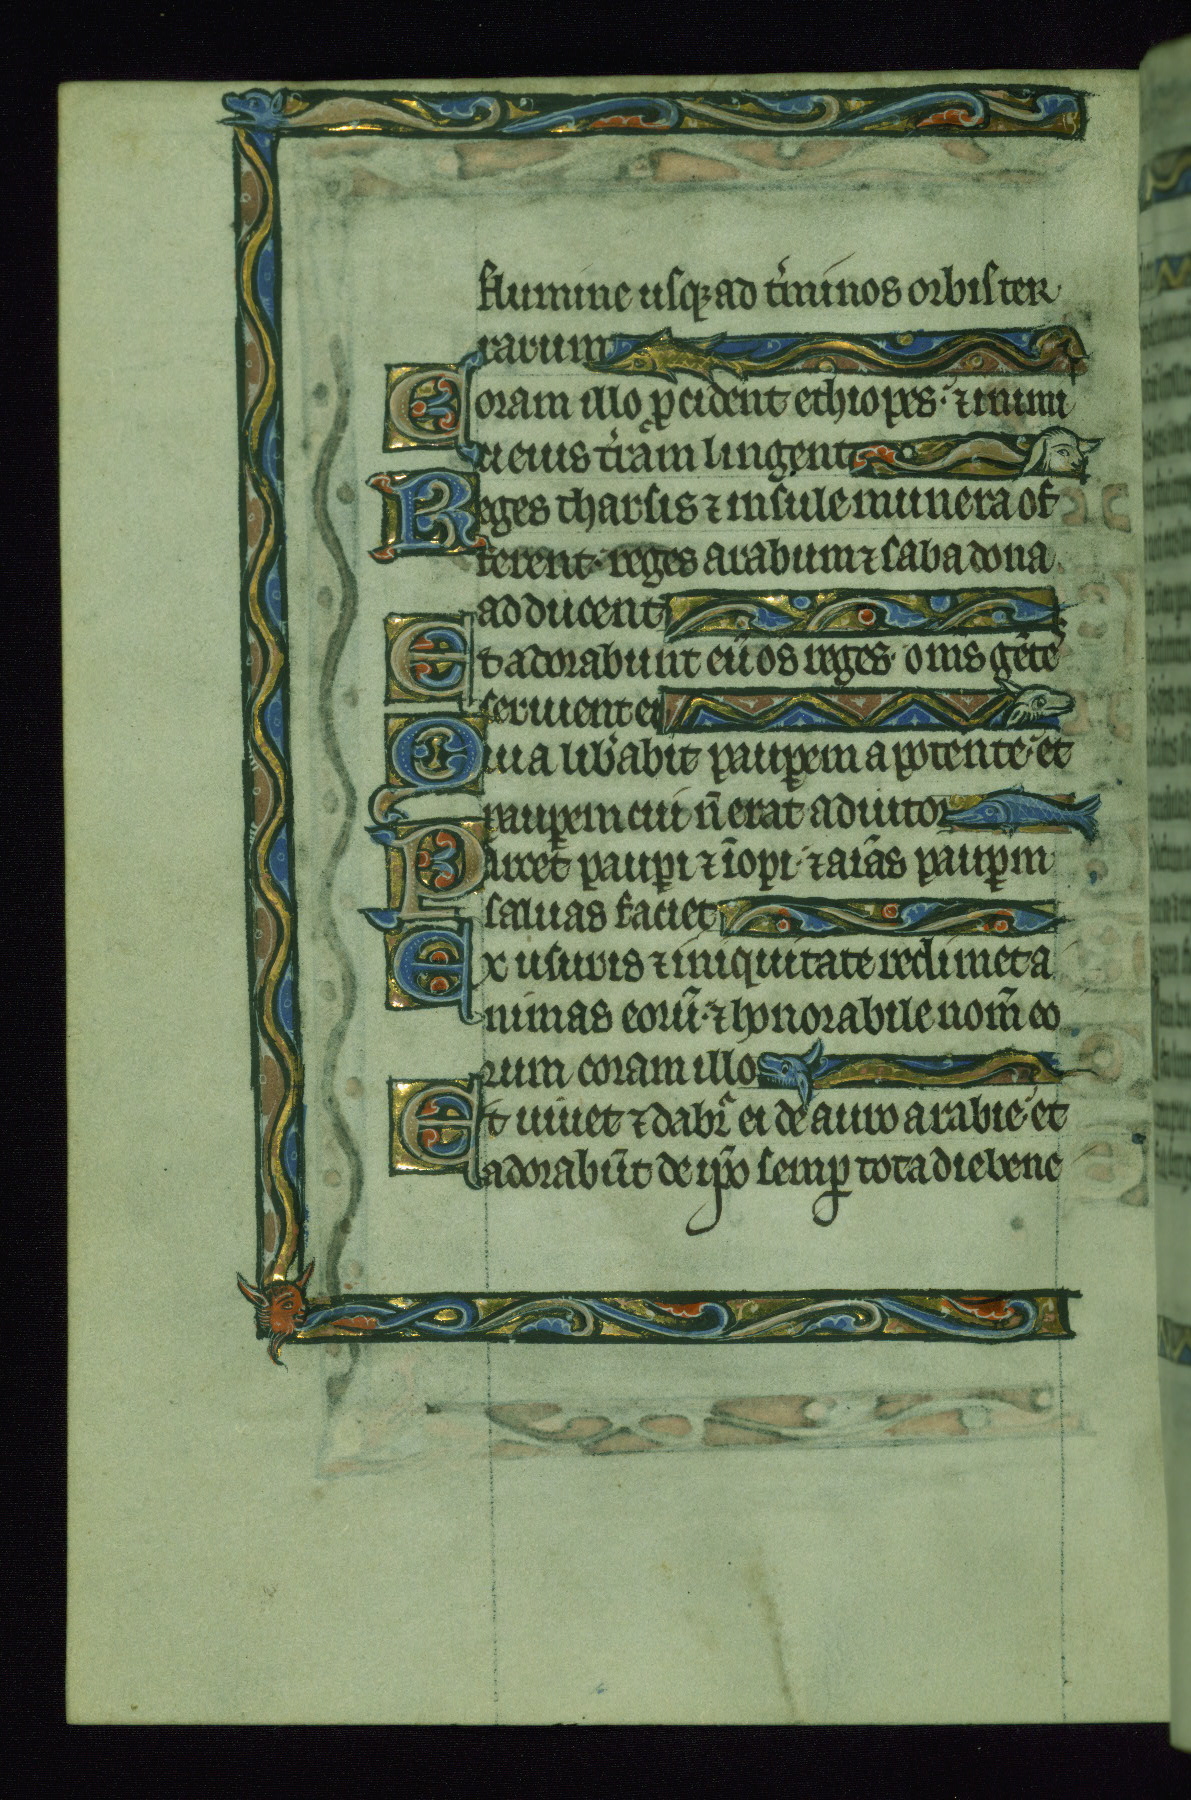 flumine usq; ad t̓minos orbis ter
rarum
Coram illo ꝓcident ethiopes· ⁊ inimi
ci eius t̓rām lingent
Reges tharsis ⁊ insule munera of
ferent· reges arabum ⁊ saba dona
adducent
Et adorabunt eū os reges· om̄s gēte
seruient ei
Quia lib̓abit paup̱em a potente· et
paup̱em cui n̄ erat adiutor
Parcet paup̱i ⁊ īopi· ⁊ aīas paup̱m
saluas faciet
Ex usuris ⁊ iniquitate redimet a
nimas eorū· ⁊ honorabile nom̄ eo
rum coram illo
Et uiuet ⁊ dabr̄ ei de auro arabie· et
adorabūt de ip̄o semp̱ tota die bene